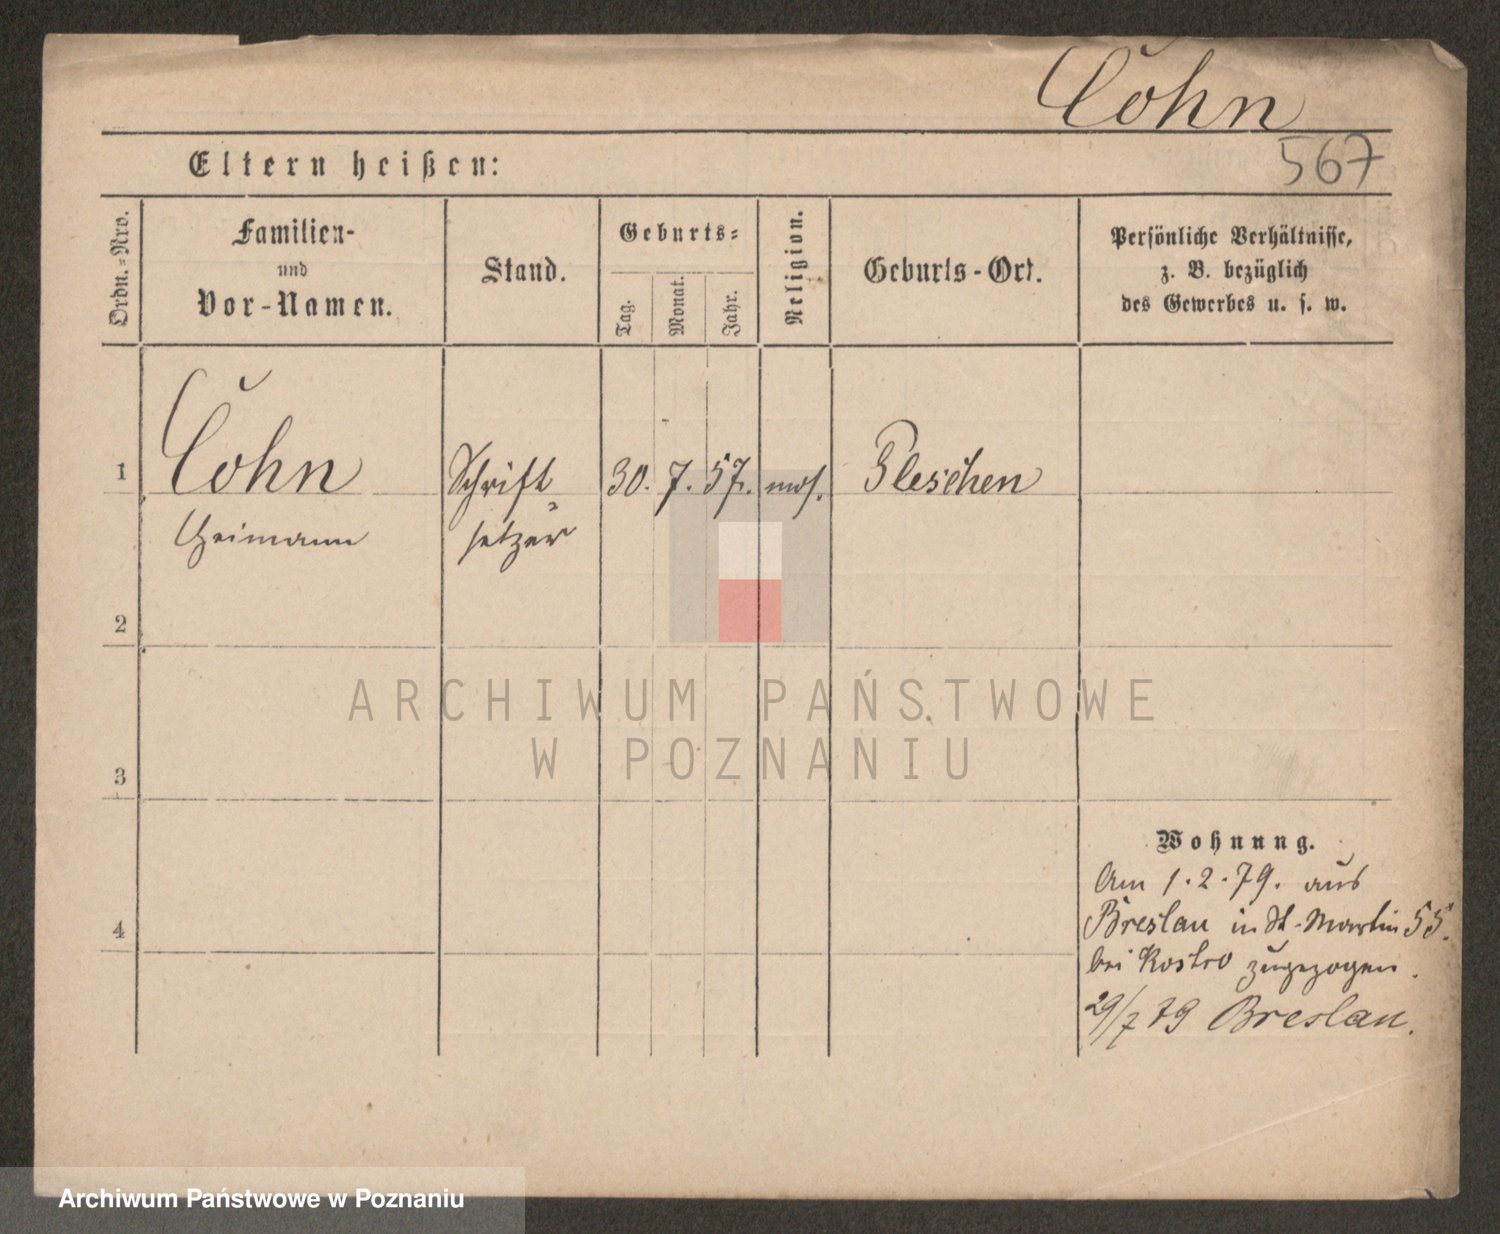 Cohn
567
Eltern heißen:
Ordn.-Nro.
Familien-
und
Vor-Namen.
Stand.
Geburts-
Tag.
Monat.
Jahr.
Religion.
Geburts-Ort.
Persönliche Verhältnisse,
z. B. bezüglich
des Gewerbes u. s. w.
1
Cohn
Heimann
Schrift-
setzer
30. 7. 57. mos. Pleschen
2
3
4
ARCHIWUM PAŃSTWOWE
W POZNANIU
Wohnung.
Am 1.2.79. aus
Breslau in St. Martin 55.
bei Kostro zugezogen.
29/7 79 Breslau.
Archiwum Państwowe w Poznaniu